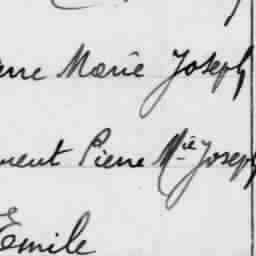 erre Marie Joseph
ment Pierre Mie Joseph
Emile